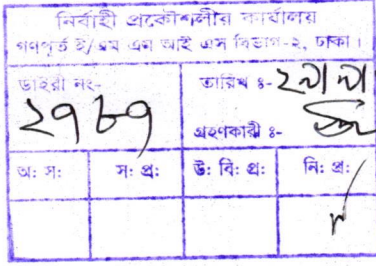 নির্বাহী প্রকৌশলীর কার্যালয়
গণপূর্ত ই/এম এম আই এস বিভাগ-২, ঢাকা।
ডাইরী নং- তারিখ ঃ-
২৭৮৭
গ্রহণকারী ঃ-
অ: স: স: প্র: উ: বি: প্র: নি: প্র: